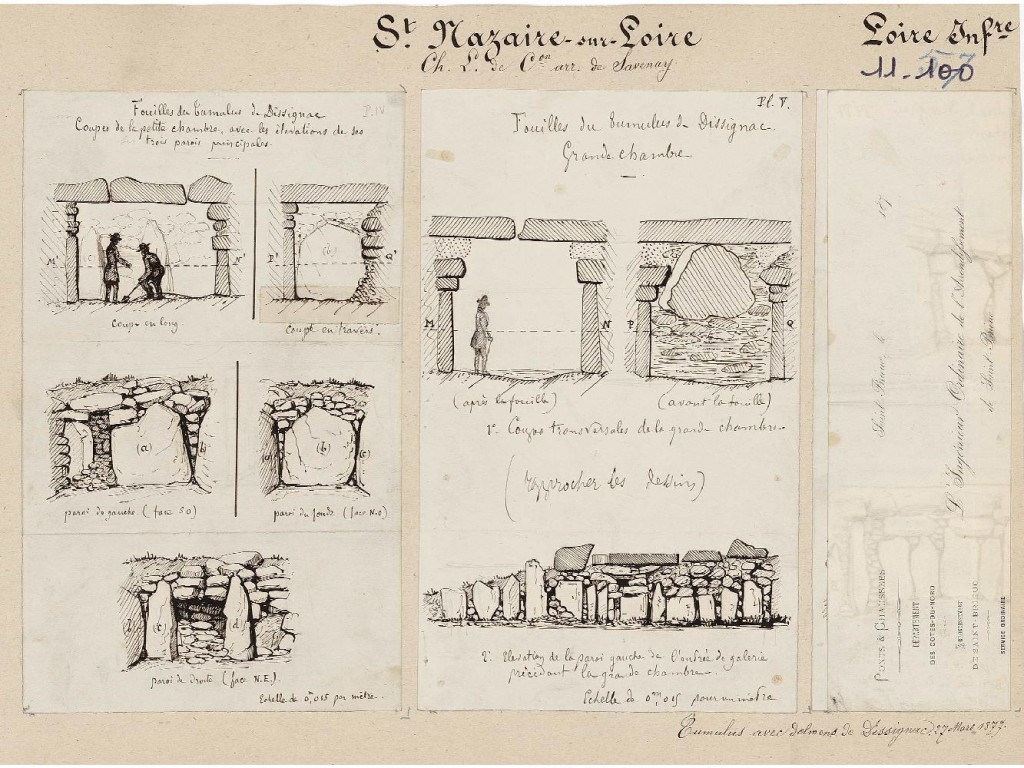 St Nazaire-sur-Loire
Ch. L. de Con arr. de Savenay
Loire Infre
11-100
Fouilles du Tumulus de Dissignac
P. IV
Coupes de la petite chambre, avec les élévations de ses
trois parois principales.
M' c N'
P' (b) Q'
Coupe en long.
Coupe en travers.
(a) b
a (b) c
paroi de gauche (face SO)
paroi du fond (face N.O)
b (c) d
paroi de droite (face N.E).
Echelle de 0m,015 par mètre.
Pl. V.
Fouilles du Tumulus de Dissignac.
Grande chambre
M N P Q
(après la fouille)
(avant la fouille)
1º Coupes transversales de la grande chambre
(rapprocher les dessins)
2º Elevation de la paroi gauche de l'entrée de galerie
précédant la grande chambre
Echelle de 0m,015 pour un mètre
Saint-Brieuc, le 187
L'Ingénieur Ordinaire de l'Arrondissement
de Saint-Brieuc
PONTS & CHAUSSÉES
DÉPARTEMENT
DES CÔTES-DU-NORD
ARRONDISSEMENT
DE SAINT-BRIEUC
SERVICE ORDINAIRE
Tumulus avec dolmens de Dissignac. 27 Mars 1877.